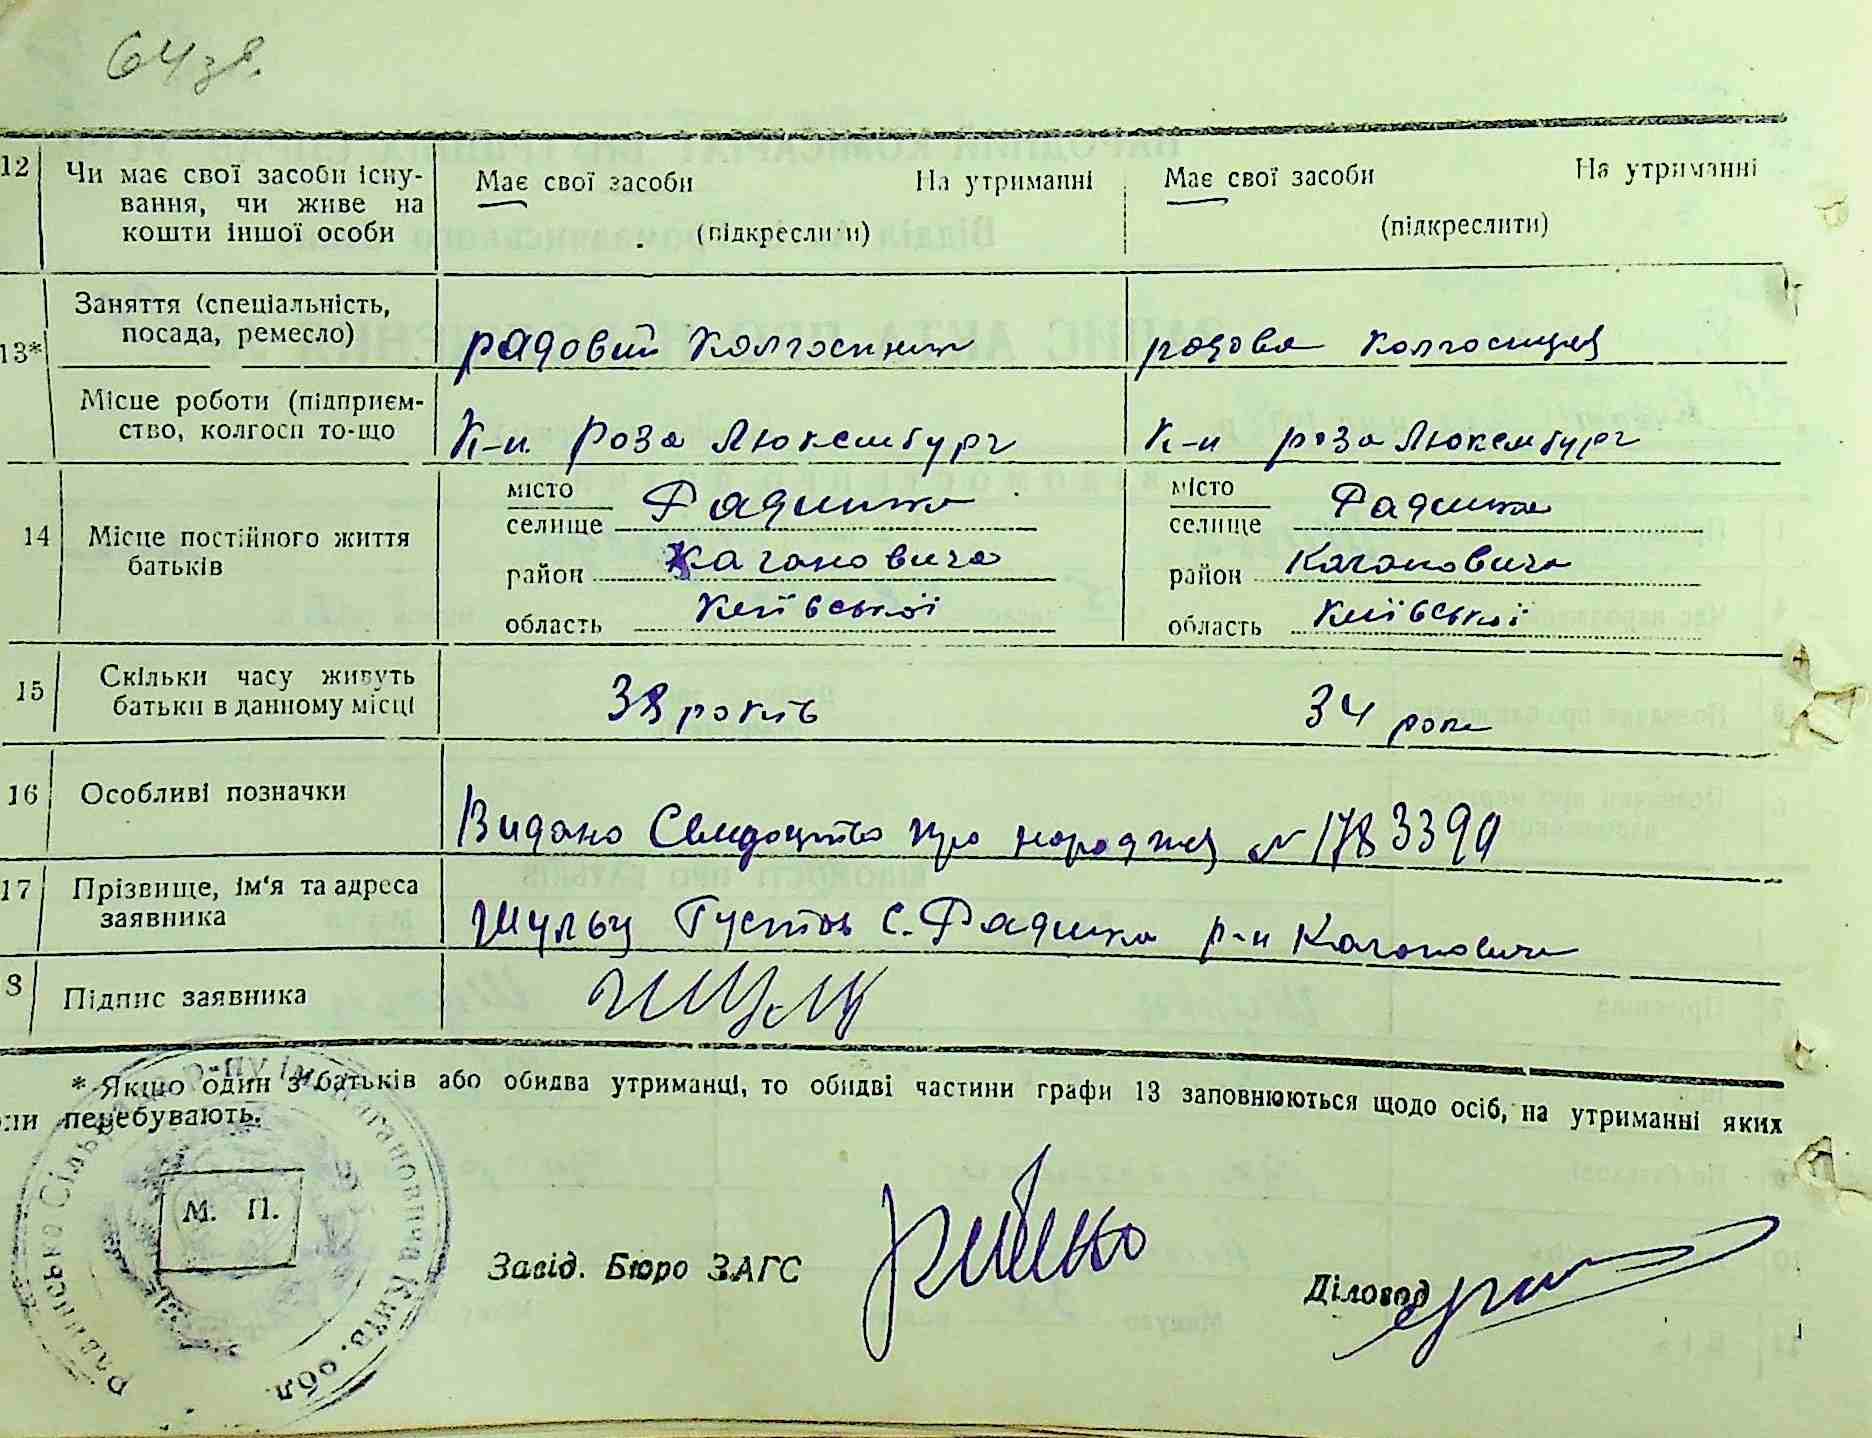 64зв.
12 Чи має свої засоби існу- Має свої засоби На утриманні Має свої засоби На утриманні
вання, чи живе на
кошти іншої особи (підкреслити) (підкреслити)
13* Заняття (спеціальність,
посада, ремесло) радовий колгоспник радова колгоспиця
Місце роботи (підприєм-
ство, колгосп то-що К-п. Роза Люксембург К-п роза Люксембург
14 Місце постійного життя
батьків
місто
селище Радинка
місто
селище Радинка
район Кагановича район Кагановича
область Київської область Київської
15 Скільки часу живуть
батьки в данному місці 38 років 34 роки
16 Особливі позначки Видано Свидоцтво про народжея № 178339
17 Прізвище, ім'я та адреса
заявника Шульц Густов с. Радинка р-н Кагановича
8 Підпис заявника Шульц
* Якщо один з батьків або обидва утриманці, то обидві частини графи 13 заповнюються щодо осіб, на утриманні яких
они перебувають.
М. П.
Кагановича Київ. обл
Завід. Бюро ЗАГС Діловод